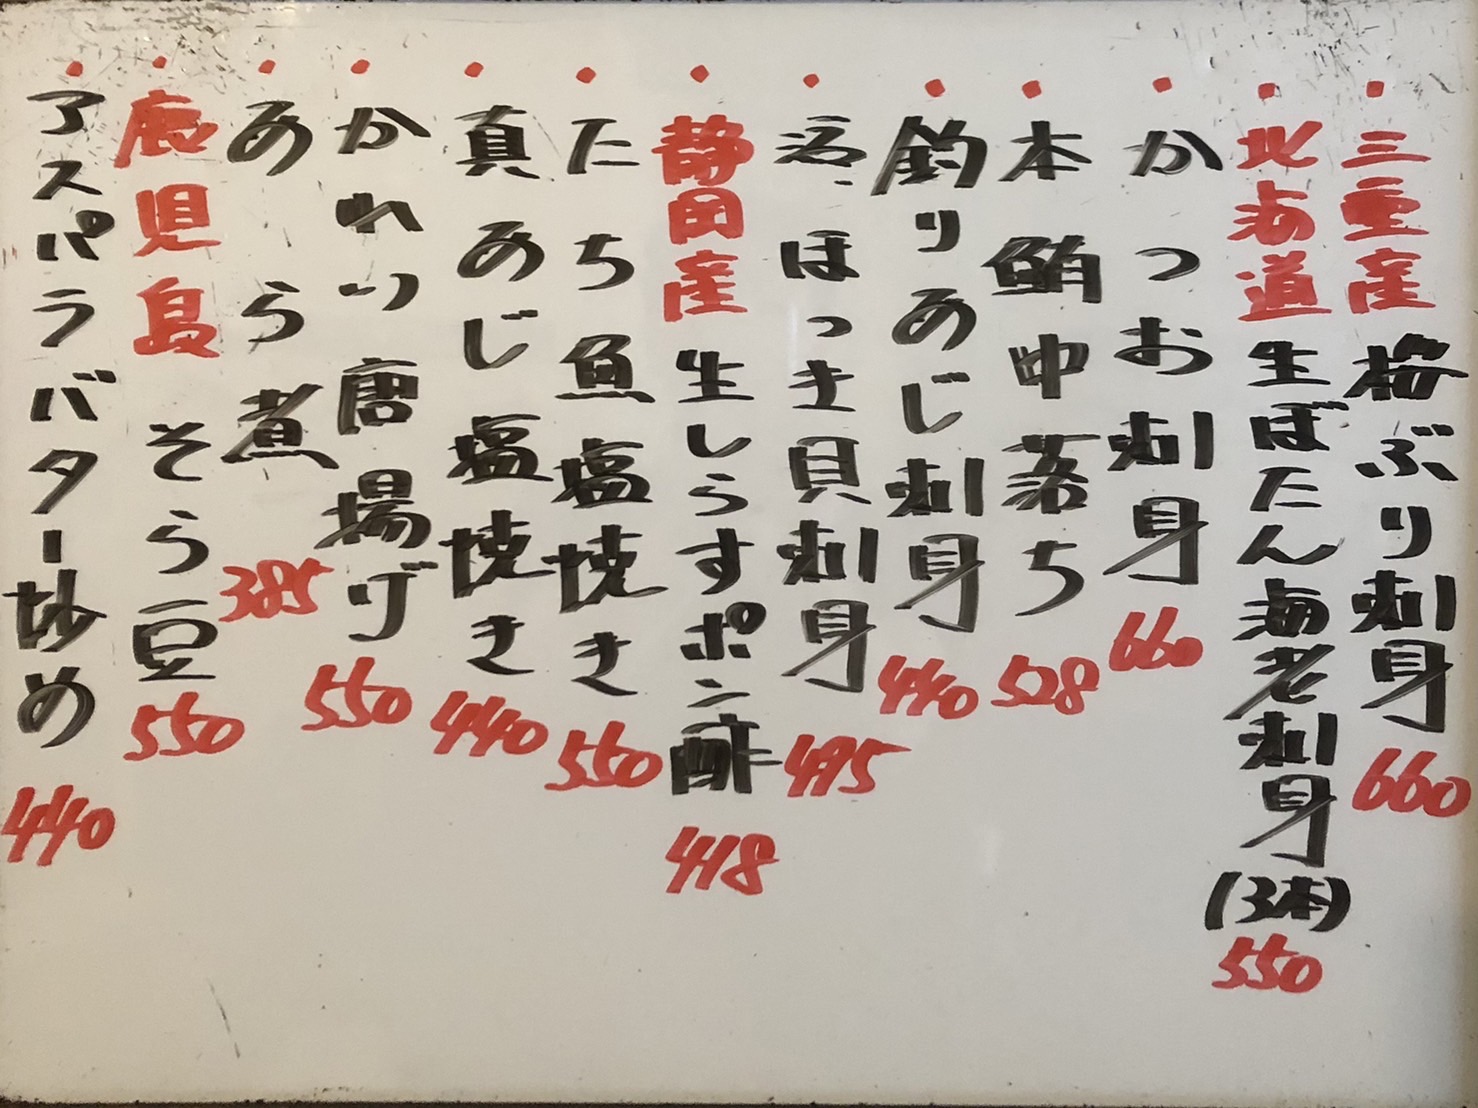 ・三重産 ぶり刺身 660
・北海道 生ぼたん海老刺身(3本) 550
・かつお刺身 660
・本鮪中落ち 528
・釣りあじ刺身 440
・活ほっき貝刺身 495
・静岡産 生しらすポン酢 418
・たち魚塩焼き 550
・真あじ塩焼き 440
・かれい唐揚げ 550
・あら煮 385
・鹿児島 そら豆 550
・アスパラバター炒め 440